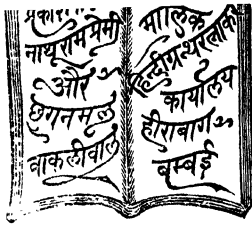 प्रकाशक
नाथूराम प्रेमी
और
छगनमल
बाकलीवाल
मालिक
हिन्दीग्रन्थरत्नाकर
कार्यालय
हीराबाग
बम्बई